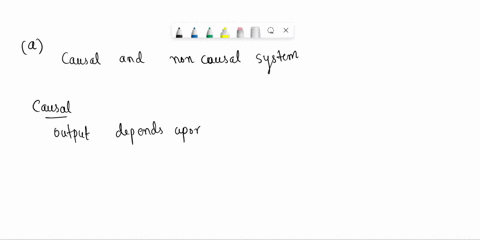 (a) Causal and non causal system
Causal
output depends upor